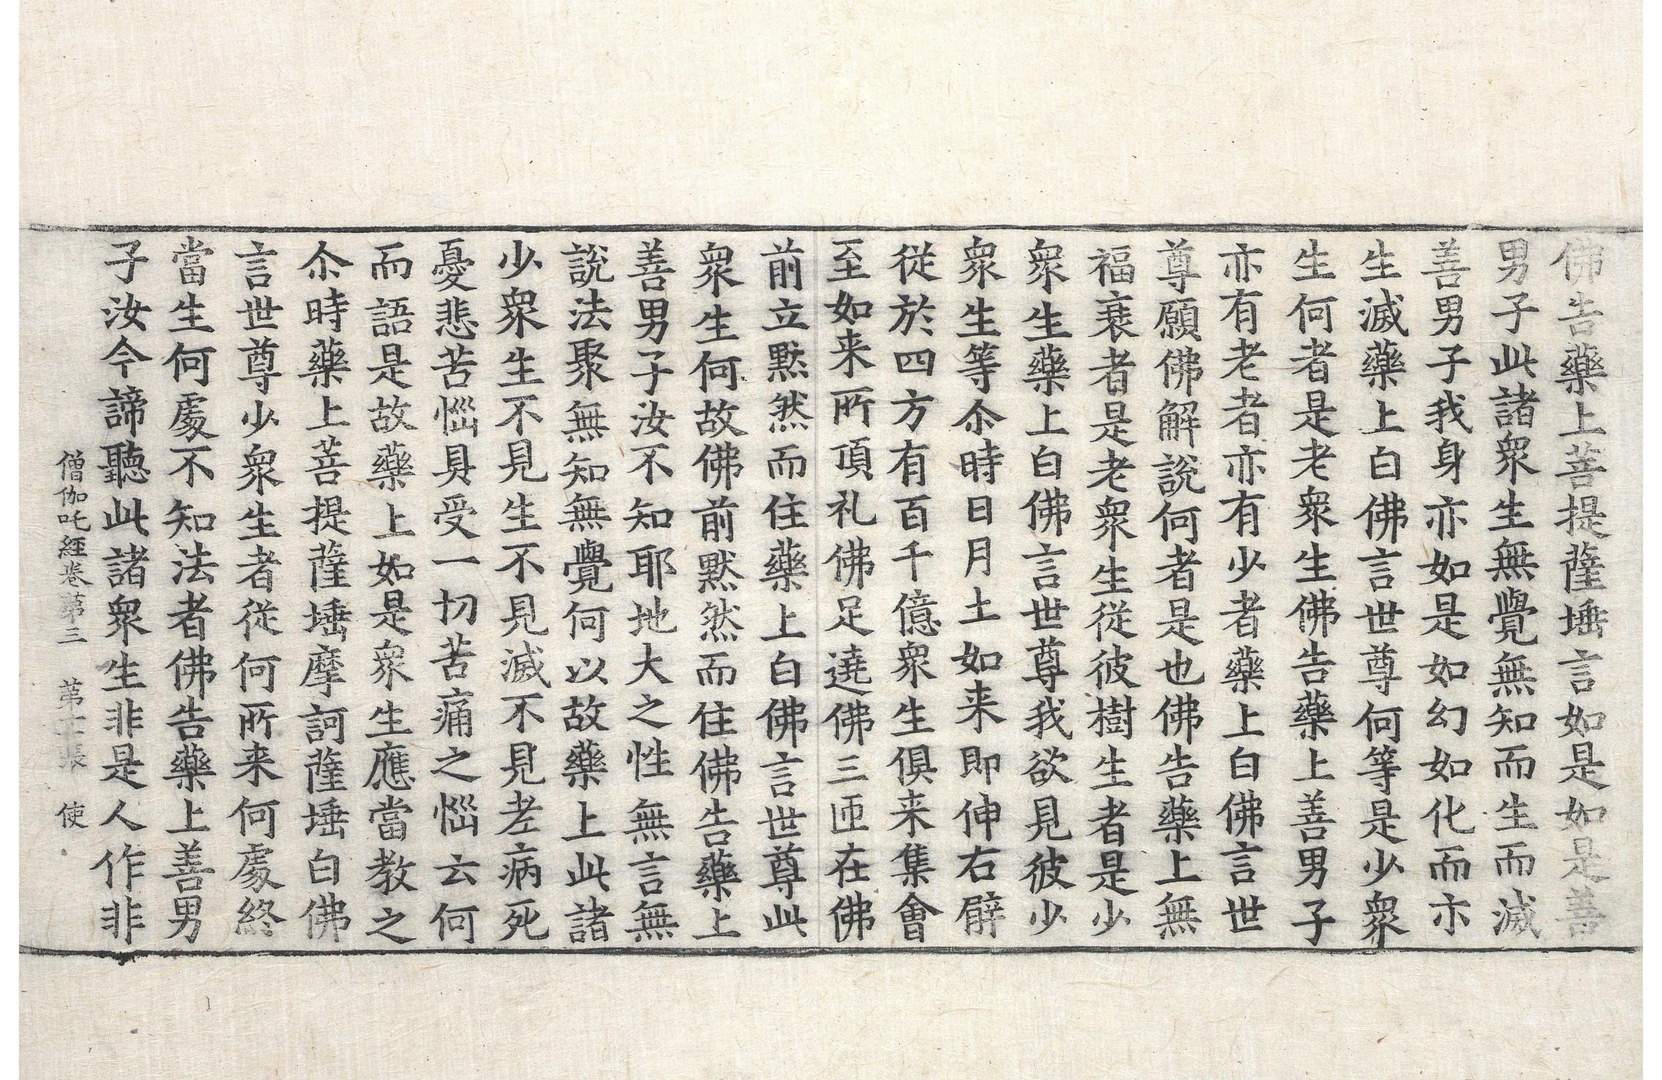 佛告藥上菩提薩埵言如是如是善
男子此諸衆生無覺無知而生而滅
善男子我身亦如是如幻如化而示
生滅藥上白佛言世尊何等是少衆
生何者是老衆生佛告藥上善男子
亦有老者亦有少者藥上白佛言世
尊願佛解說何者是也佛告藥上無
福衰者是老衆生從彼樹生者是少
衆生藥上白佛言世尊我欲見彼少
衆生等尒時日月土如来即伸右臂
從於四方有百千億衆生俱来集會
至如来所頂礼佛足遶佛三匝在佛
前立默然而住藥上白佛言世尊此
衆生何故佛前默然而住佛告藥上
善男子汝不知耶地大之性無言無
說法聚無知無覺何以故藥上此諸
少衆生不見生不見滅不見老病死
憂悲苦惱具受一切苦痛之惱云何
而語是故藥上如是衆生應當教之
尒時藥上菩提薩埵摩訶薩埵白佛
言世尊少衆生者從何所来何處終
當生何處不知法者佛告藥上善男
子汝今諦聽此諸衆生非是人作非
僧伽吒經卷第三 第十二張 使